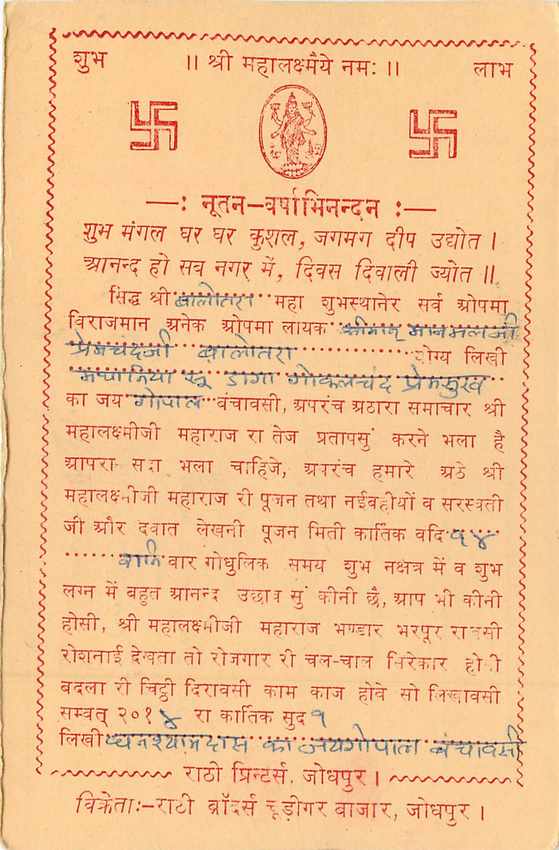 शुभ ॥ श्री महालक्ष्मैये नमः ॥ लाभ
—: नूतन-वर्षाभिनन्दन :—
शुभ मंगल घर घर कुशल, जगमग दीप उद्योत ।
आनन्द हो सब नगर में, दिवस दिवाली ज्योत ॥
सिद्ध श्री बालोतरा महा शुभस्थानेर सर्व ओपमा
विराजमान अनेक ओपमा लायक श्रीमान् मानमलजी
प्रेमचंदजी बालोतरा योग्य लिखी
डागा गोकलचंद प्रेमसुख
का जय गोपाल बंचावसी, अपरंच अठारा समाचार श्री
महालक्ष्मीजी महाराज रा तेज प्रतापसुं करने भला है
आपरा सदा भला चाहिजे, अपरंच हमारे अठे श्री
महालक्ष्मीजी महाराज री पूजन तथा नईवहीयों व सरस्वती
जी और दवात लेखनी पूजन मिती कार्तिक वदि १४
वार गोधुलिक समय शुभ नक्षत्र में व शुभ
लग्न में बहुत आनन्द उछाव सुं कीनी छै, आप भी कीनी
होसी, श्री महालक्ष्मीजी महाराज भण्डार भरपूर राखसी
रोशनाई देखता तो रोजगार री चल-चाल सिरेकार होसी
बदला री चिट्ठी दिरावसी काम काज होवे सो लिखावसी
सम्वत् २०१४ रा कार्तिक सुद १
लिखी घनश्यामदास का जयगोपाल बंचावसी
राठी प्रिन्टर्स, जोधपुर ।
विक्रेताः-राठी ब्रॉदर्स चूड़ीगर बाजार, जोधपुर ।